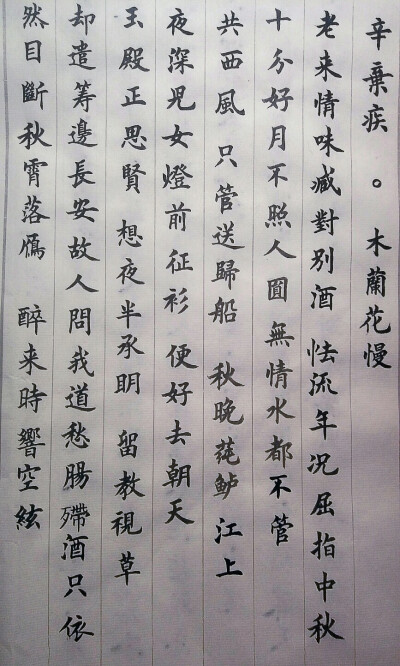 辛棄疾。木蘭花慢
老来情味减對別酒怯流年况屈指中秋
十分好月不照人圓無情水都不管
共西風只管送歸船秋晚蒓鲈江上
夜深児女燈前征衫便好去朝天
玉殿正思賢想夜半承明留教視草
却遣筹邊長安故人問我道愁腸殢酒只依
然目斷秋霄落鴈醉来時響空絃